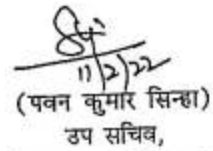 11/2/22
(पवन कुमार सिन्हा)
उप सचिव,